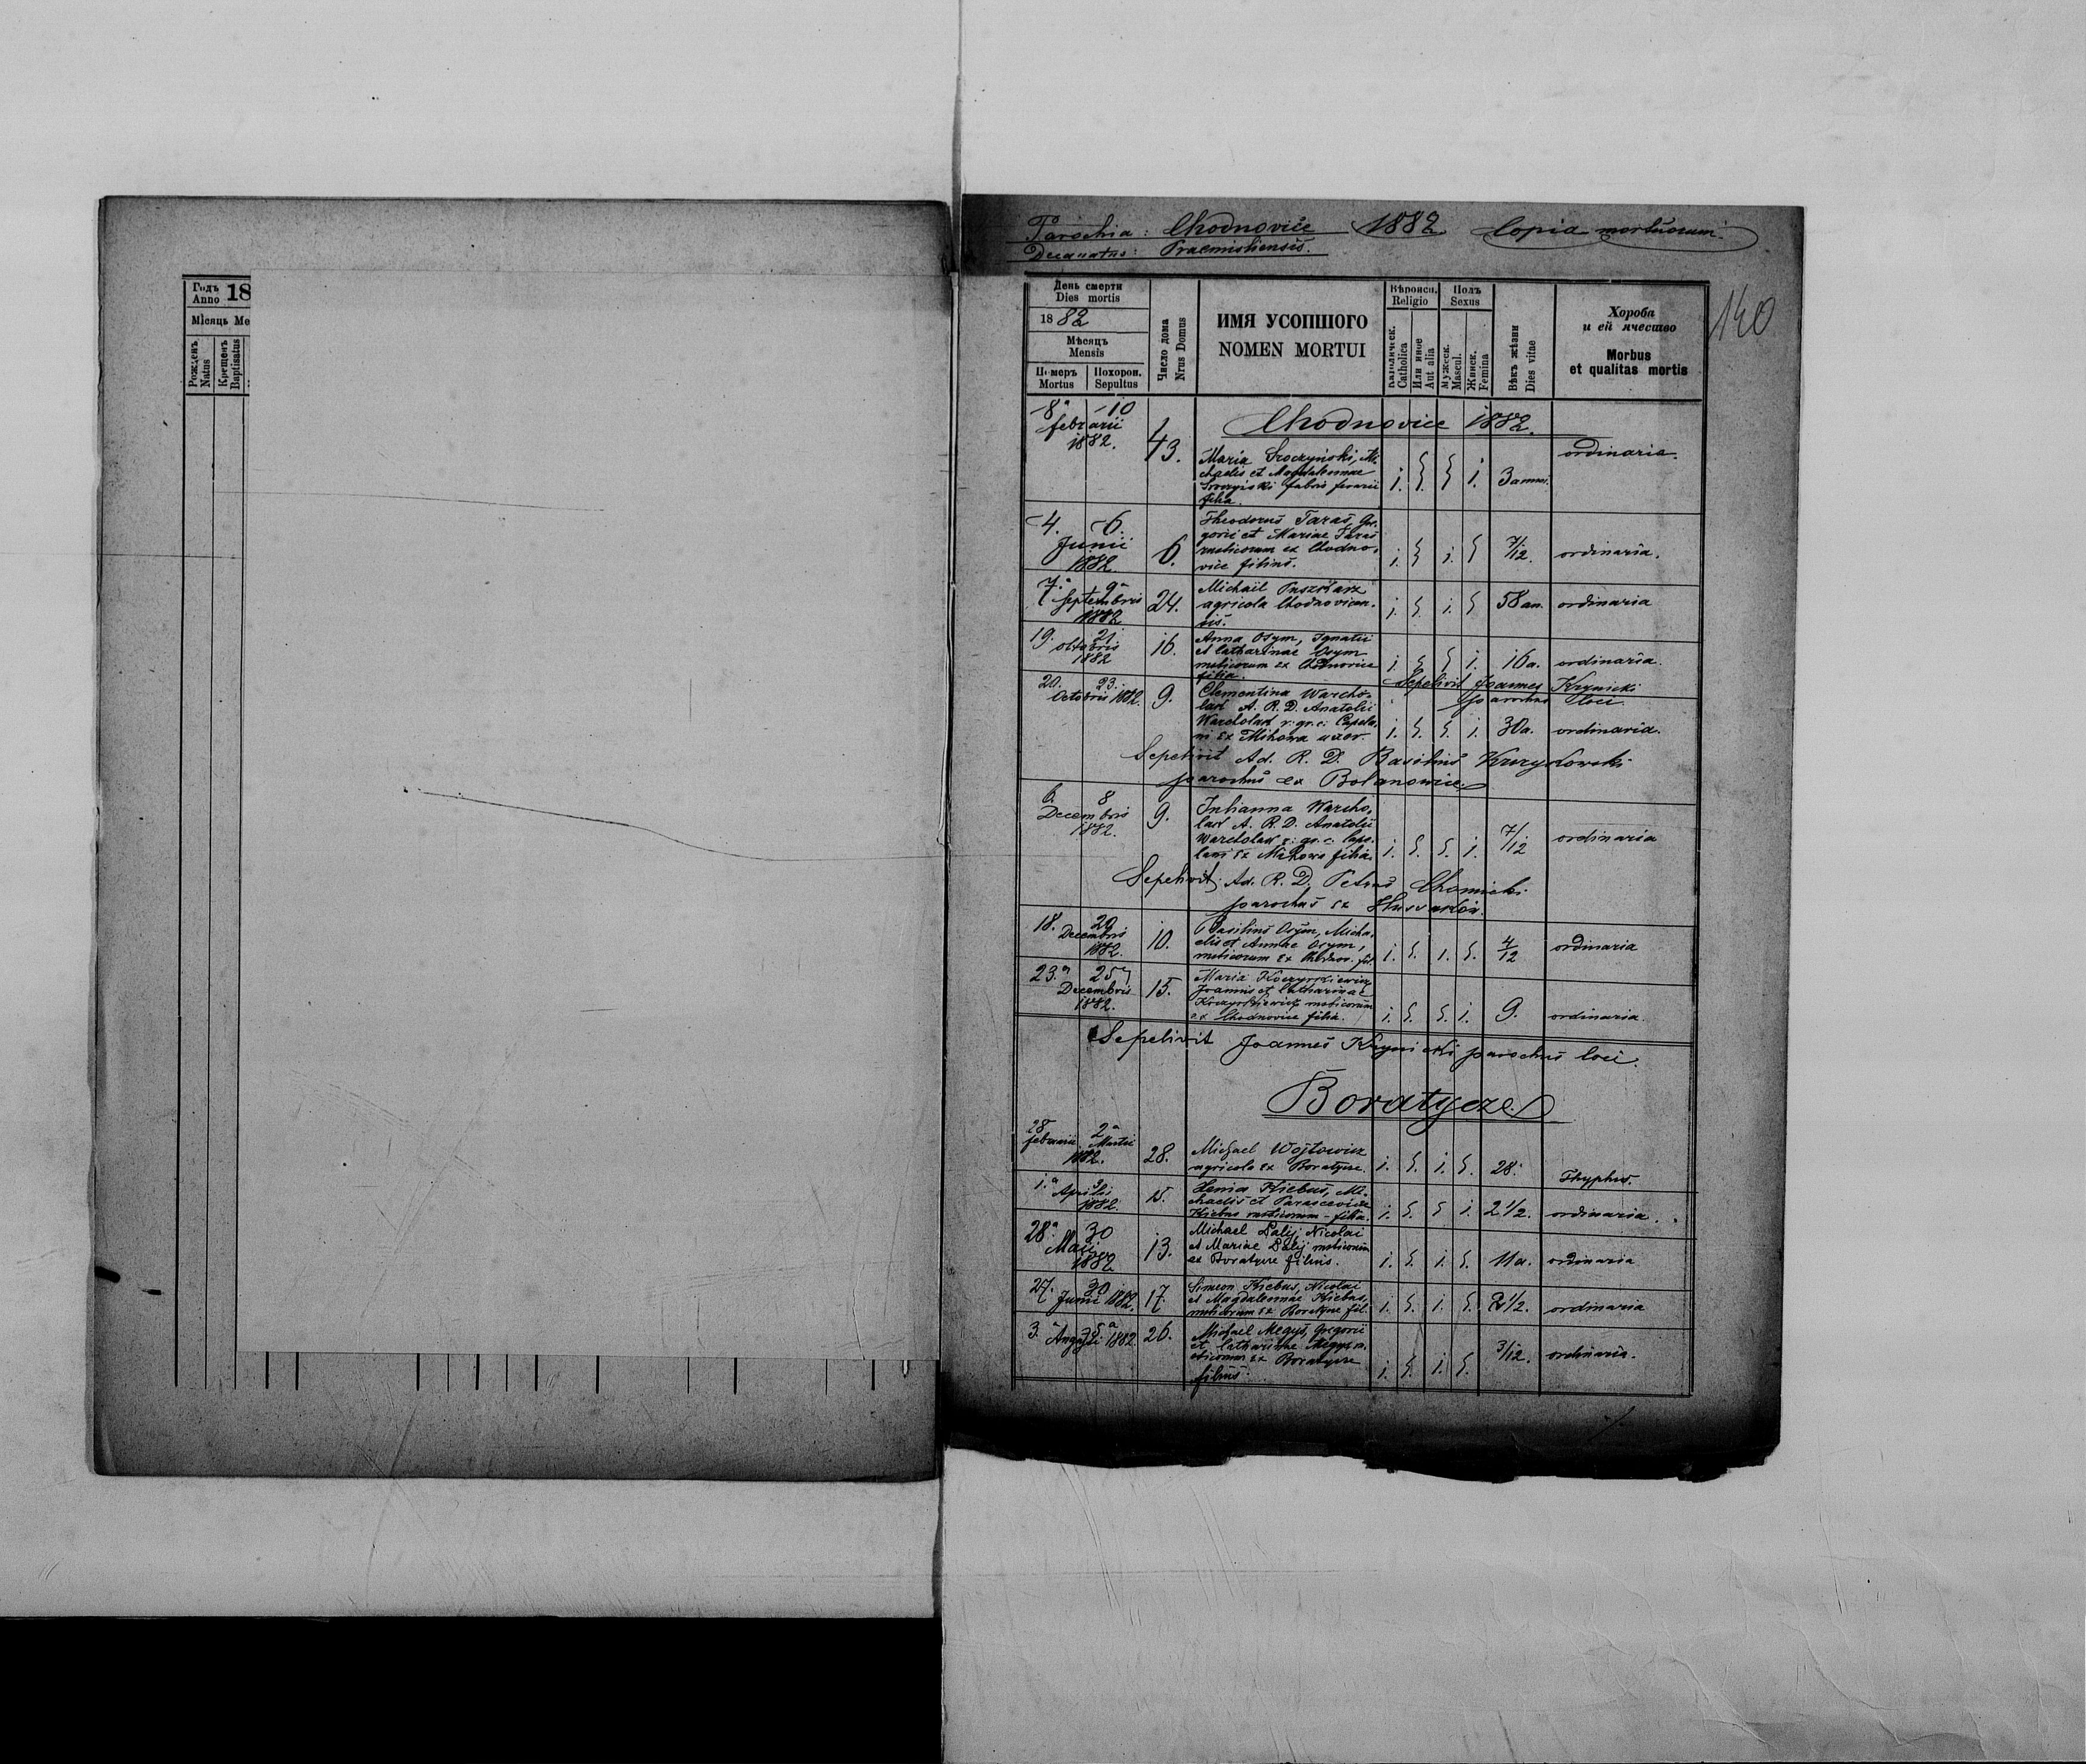 Parochia: Chodnovice 1882 Copia mortuorum.
Decanatus: Praemisliensis.
140
Годъ
Anno 18
Мѣсяць Me
Рожденъ
Natus
Крещенъ
Baptisatus
День смерти
Dies mortis
1882
Мѣсяцъ
Mensis
Померъ
Mortus
Похорон.
Sepultus
Число дома
Nrus Domus
ИМЯ УСОПШОГО
NOMEN MORTUI
Вѣроисп.
Religio
Католическ.
Catholica
Или иное
Aut alia
Полъ
Sexus
Мужеск.
Mascul.
Женск.
Femina
Вѣкъ жѣзни
Dies vitae
Хороба
и ей ячество
Morbus
et qualitas mortis
Chodnovice 1882.
8ª 10
februarii
1882.
43.
Maria Sroczyński, Mi-
chaelis et Magdalennae
Sroczyński fabri ferarii
filia.
i. i. 3 anni. ordinaria.
4. 6.
Junii
1882.
6.
Theodorus Taras, Gre-
gorii et Mariae Taras
rusticorum ex Chodno-
vice filius.
i. i. 7/12. ordinaria.
7ª 9ª
Septembris
1882
24.
Michaël Puszkarz
agricola Chodnovicen-
sis.
i. i. 58 an. ordinaria
19. 21.
oktobris
1882
16.
Anna Osym, Ignatii
et Catharinae Osym
rusticorum ex Chodnovice
filia.
i. i. 16 a. ordinaria.
Sepelivit Joannes Krynicki
parochus loci.
20. 23.
Octobris 1882.
9.
Clementina Warcho-
lak A. R. D. Anatolii
Warcholak r. gr. c. Capela-
ni ex Mihowa uxor.
i. i. 30 a. ordinaria.
Sepelivit Ad. R. D. Basilius
parochus ex Bolanowice.
6. 8
Decembris
1882.
9.
Julianna Warcho-
lak A. R. D. Anatolii
Warcholak r. gr. c. Cape-
lani ex Mihowa filia.
i. i. 7/12 ordinaria
Sepelivit Ad. R. D. Petrus Chomicki
parochus ex
18. 20
Decembris
1882.
10.
Basilius Osym, Micha-
elis et Annae Osym,
rusticorum ex Chodnov. fil.
i. i. 4/12 ordinaria
23.ª 25.
Decembris
1882.
15.
Maria Koczyrkiewicz
Joannis et Catharinae
Koczyrkiewicz rusticorum
ex Chodnovice filia.
i. i. 9. ordinaria.
Sepelivit Joannes Krynicki parochus loci.
Boratycze
28 2ª
februarii Martii
1882.
28.
Michael Wojtowicz
agricola ex Boratycze.
i. i. 28. Thyphus.
1.ª 3
Aprilis
1882.
15.
Xenia Kiebus, Mi-
chaelis et Parascevia
Kiebus rusticorum filia.
i. i. 2 1/2. ordinaria.
28ª 30
Maii
1882
13.
Michael Dalij, Nicolai
et Mariae Dalij rusticorum
ex Boratycze filius.
i. i. 11 a. ordinaria
27. 30
Junii 1882.
17.
Simeon Kiebus, Nicolai
et Magdalennae Kiebus,
rusticorum ex Boratycze fil.
i. i. 2 1/2. ordinaria
3.ª 5ª
Augusti 1882
26.
Michael Megys, Gregorii
et Catharinae Megys ru-
sticorum ex Boratycze
filius.
i. i. 3/12. ordinaria.